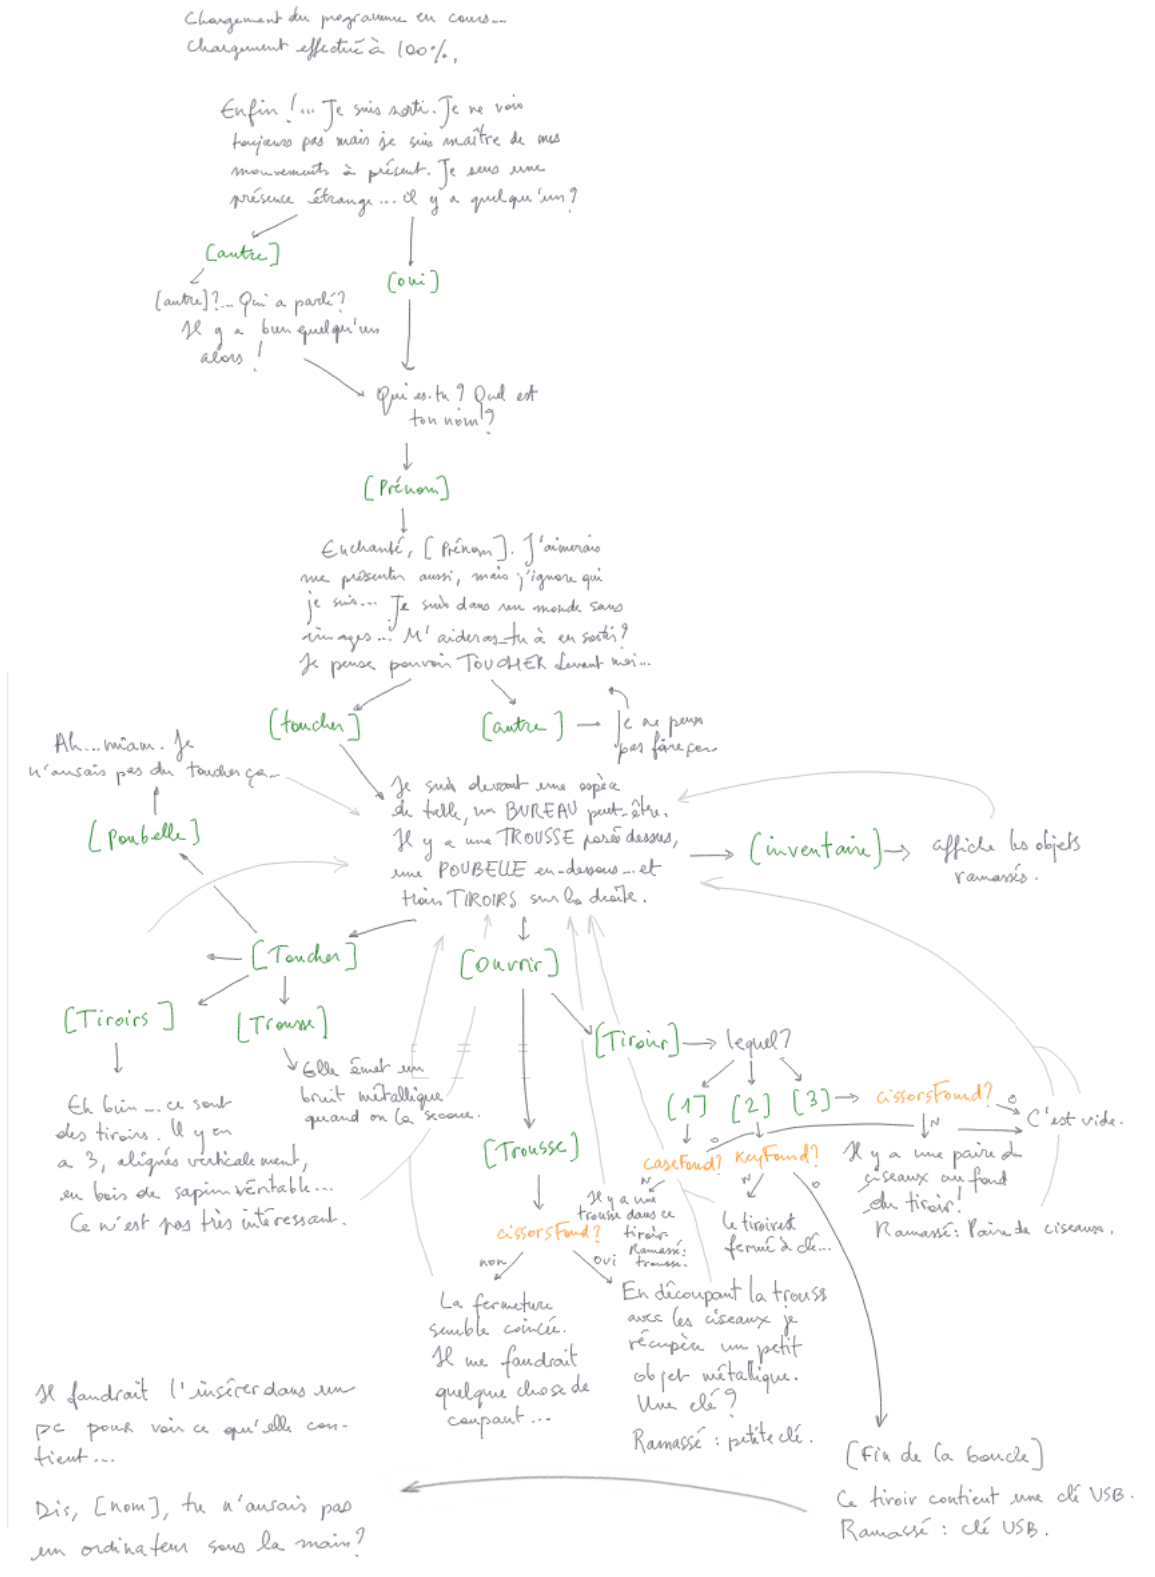 Chargement du programme en cours...
Chargement effectué à 100%.
Enfin !... Je suis sorti. Je ne vois
toujours pas mais je suis maître de mes
mouvements à présent. Je sens une
présence étrange... il y a quelqu'un ?
[autre]
[oui]
[autre] ?... Qui a parlé ?
Il y a bien quelqu'un
alors !
Qui es-tu ? Quel est
ton nom ?
[Prénom]
Enchanté, [Prénom]. J'aimerais
me présenter aussi, mais j'ignore qui
je suis... Je suis dans un monde sans
images... M'aideras-tu à en sortir ?
Je pense pouvoir TOUCHER devant moi...
[toucher]
[autre]
Je ne peux
pas faire ça...
Ah... miam. Je
n'aurais pas du toucher ça...
[Poubelle]
Je suis devant une espèce
de table, un BUREAU peut-être.
Il y a une TROUSSE posée dessus,
une POUBELLE en-dessous... et
trois TIROIRS sur la droite.
[inventaire]
affiche les objets
ramassés.
[Toucher]
[Ouvrir]
[Tiroirs]
[Trousse]
[Tiroir]
lequel ?
Elle émet un
bruit métallique
quand on la secoue.
[1]
[2]
[3]
cissorsFound?
o
N
C'est vide.
Eh bien... ce sont
des tiroirs. Il y en
a 3, alignés verticalement,
en bois de sapin véritable...
Ce n'est pas très intéressant.
[Trousse]
o
caseFound?
KeyFound?
N
N
o
Il y a une paire de
ciseaux au fond
du tiroir !
Ramassé : Paire de ciseaux.
Il y a une
trousse dans ce
tiroir.
Ramassé :
trousse.
le tiroir est
fermé à clé...
cissorsFound?
non
oui
La fermeture
semble coincée.
Il me faudrait
quelque chose de
coupant...
En découpant la trousse
avec les ciseaux je
récupère un petit
objet métallique.
Une clé ?
Ramassé : petite clé.
[Fin de la boucle]
Ce tiroir contient une clé USB.
Ramassé : clé USB.
Il faudrait l'insérer dans un
pc pour voir ce qu'elle con-
tient...
Dis, [nom], tu n'aurais pas
un ordinateur sous la main ?